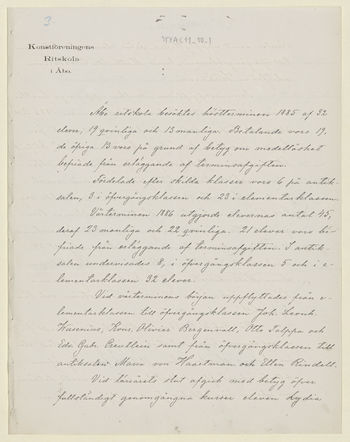 3
Konstföreningens
Ritskola
i Åbo.
Åbo ritskola besöktes höstterminen 1885 af 32
elever, 19 qvinliga och 13 manliga. Betalande voro 19,
de öfriga 13 voro på grund af betyg om medellöshet
befriade från erläggande af terminsafgiften.
Fördelade efter skilda klasser voro 6 på antik-
salen, 3 i öfvergångsklassen och 23 i elementarklassen.
Vårterminen 1886 utgjorde elevernas antal 45,
deraf 23 manliga och 22 qvinliga. 21 elever voro be-
friade från erläggande af terminsafgiften. I antik-
salen undervisades 8, i öfvergångsklassen 5 och i e-
lementarklassen 32 elever.
Vid vårterminens början uppflyttades från e-
lementarklassen till öfvergångsklassen Joh. Leonh.
Kons. Olivier Bergenvall, Otto Salppa och
Gabr. samt från öfvergångsklassen till
antiksalen Maria von Haartman och Ellen Rindell.
Vid läroårets slut afgick med betyg öfver
fullständigt genomgångna kurser eleven Lydia